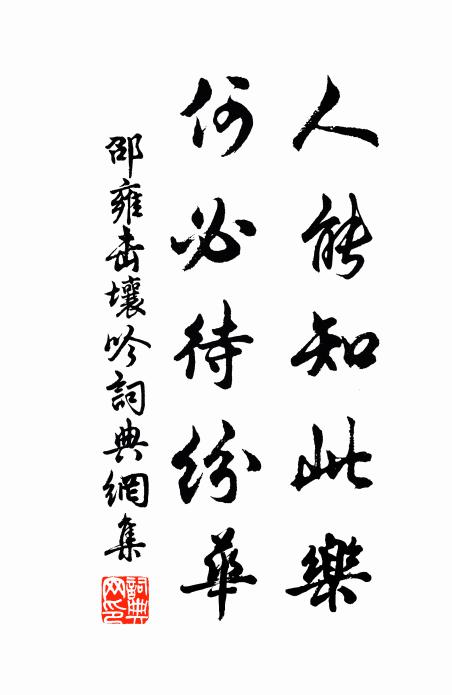 人能知此樂
何必待紛華
邵雍擊壤吟詞典網集
詞典網印